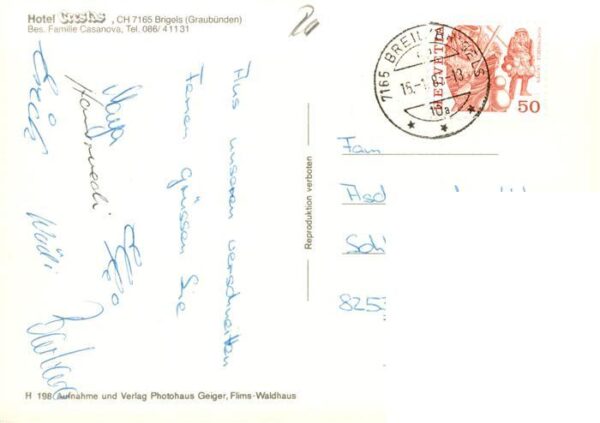 Hotel Crestas, CH 7165 Brigels (Graubünden)
Bes. Familie Casanova, Tel. 086/41131
Aus unseren verschneiten
Ferien grüssen Sie
Maya
Hansruedi
Barbara
Reproduktion verboten
7165 BREIL/BRIGELS
HELVETIA
50
Fam
Asc
Sch
825
H 198 Aufnahme und Verlag Photohaus Geiger, Flims-Waldhaus